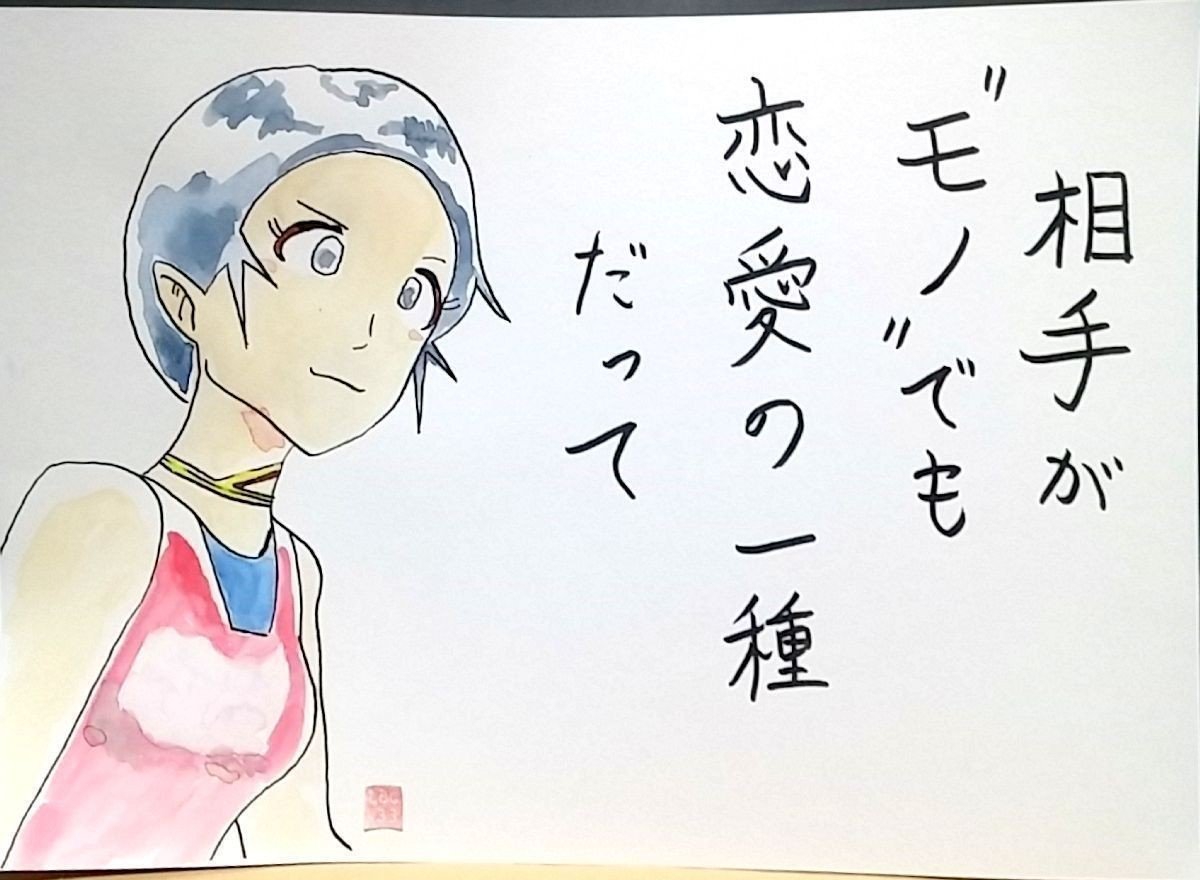 相手が
〝モノ〟でも
恋愛の一種
だって